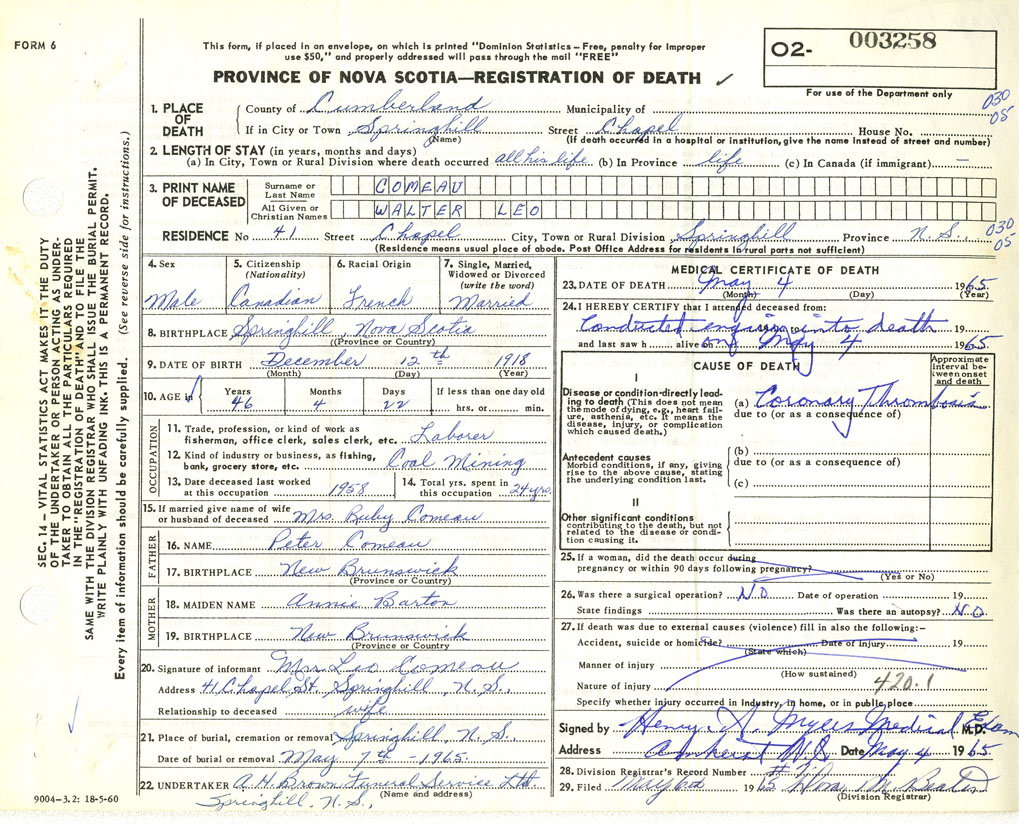 FORM 6
This form, if placed in an envelope, on which is printed "Dominion Statistics – Free, penalty for improper
use $50," and properly addressed will pass through the mail "FREE"
PROVINCE OF NOVA SCOTIA—REGISTRATION OF DEATH
O2- 003258
For use of the Department only
SEC. 14 – VITAL STATISTICS ACT MAKES IT THE DUTY
OF THE UNDERTAKER OR PERSON ACTING AS UNDER-
TAKER TO OBTAIN ALL THE PARTICULARS REQUIRED
IN THE "REGISTRATION OF DEATH" AND TO FILE THE
SAME WITH THE DIVISION REGISTRAR WHO SHALL ISSUE THE BURIAL PERMIT.
WRITE PLAINLY WITH UNFADING INK. THIS IS A PERMANENT RECORD.
Every item of information should be carefully supplied. (See reverse side for instructions.)
1. PLACE OF DEATH
County of Cumberland Municipality of
030
05
If in City or Town Springhill Street Chapel House No.
(Name) (If death occurred in a hospital or institution, give the name instead of street and number)
2. LENGTH OF STAY (in years, months and days)
(a) In City, Town or Rural Division where death occurred all his life (b) In Province life (c) In Canada (if immigrant) —
3. PRINT NAME OF DECEASED
Surname or Last Name COMEAU
All Given or Christian Names WALTER LEO
RESIDENCE No 41 Street Chapel City, Town or Rural Division Springhill Province N.S.
030
05
(Residence means usual place of abode. Post Office Address for residents in rural parts not sufficient)
4. Sex Male
5. Citizenship (Nationality) Canadian
6. Racial Origin French
7. Single, Married, Widowed or Divorced (write the word) Married
8. BIRTHPLACE Springhill, Nova Scotia
(Province or Country)
9. DATE OF BIRTH December 12th 1918
(Month) (Day) (Year)
10. AGE in Years 46 Months 4 Days 22 If less than one day old hrs. or min.
OCCUPATION
11. Trade, profession, or kind of work as fisherman, office clerk, sales clerk, etc. Laborer
12. Kind of industry or business, as fishing, bank, grocery store, etc. Coal Mining
13. Date deceased last worked at this occupation 1958
14. Total yrs. spent in this occupation 24 yrs.
15. If married give name of wife or husband of deceased Mrs. Ruby Comeau
FATHER
16. NAME Peter Comeau
17. BIRTHPLACE New Brunswick
(Province or Country)
MOTHER
18. MAIDEN NAME Annie Barton
19. BIRTHPLACE New Brunswick
(Province or Country)
20. Signature of informant Mrs Leo Comeau
Address 41 Chapel St. Springhill, N.S.,
Relationship to deceased wife
21. Place of burial, cremation or removal Springhill, N.S.,
Date of burial or removal May 7th - 1965.
22. UNDERTAKER A.H. Brown Funeral Service Ltd
(Name and address)
Springhill, N.S.,
9004–3.2: 18-5-60
MEDICAL CERTIFICATE OF DEATH
23. DATE OF DEATH May 4 1965
(Month) (Day) (Year)
24. I HEREBY CERTIFY that I attended deceased from:
Conducted enquiry into death 19
and last saw h alive on May 4 1965
CAUSE OF DEATH
Approximate interval between onset and death
I
Disease or condition directly leading to death (This does not mean the mode of dying, e.g., heart failure, asthenia, etc. It means the disease, injury, or complication which caused death.)
(a) Coronary Thrombosis
due to (or as a consequence of)
Antecedent causes
Morbid conditions, if any, giving rise to the above cause, stating the underlying condition last.
(b)
due to (or as a consequence of)
(c)
II
Other significant conditions contributing to the death, but not related to the disease or condition causing it.
25. If a woman, did the death occur during
pregnancy or within 90 days following pregnancy?
(Yes or No)
26. Was there a surgical operation? NO Date of operation 19
State findings Was there an autopsy? NO
27. If death was due to external causes (violence) fill in also the following:–
Accident, suicide or homicide? Date of injury 19
(State which)
Manner of injury
(How sustained)
Nature of injury 420.1
Specify whether injury occurred in industry, in home, or in public place
Signed by Henry A. Myers Medical M.D.
Address Amherst N.S Date May 4 1965
28. Division Registrar's Record Number
29. Filed 19
(Division Registrar)